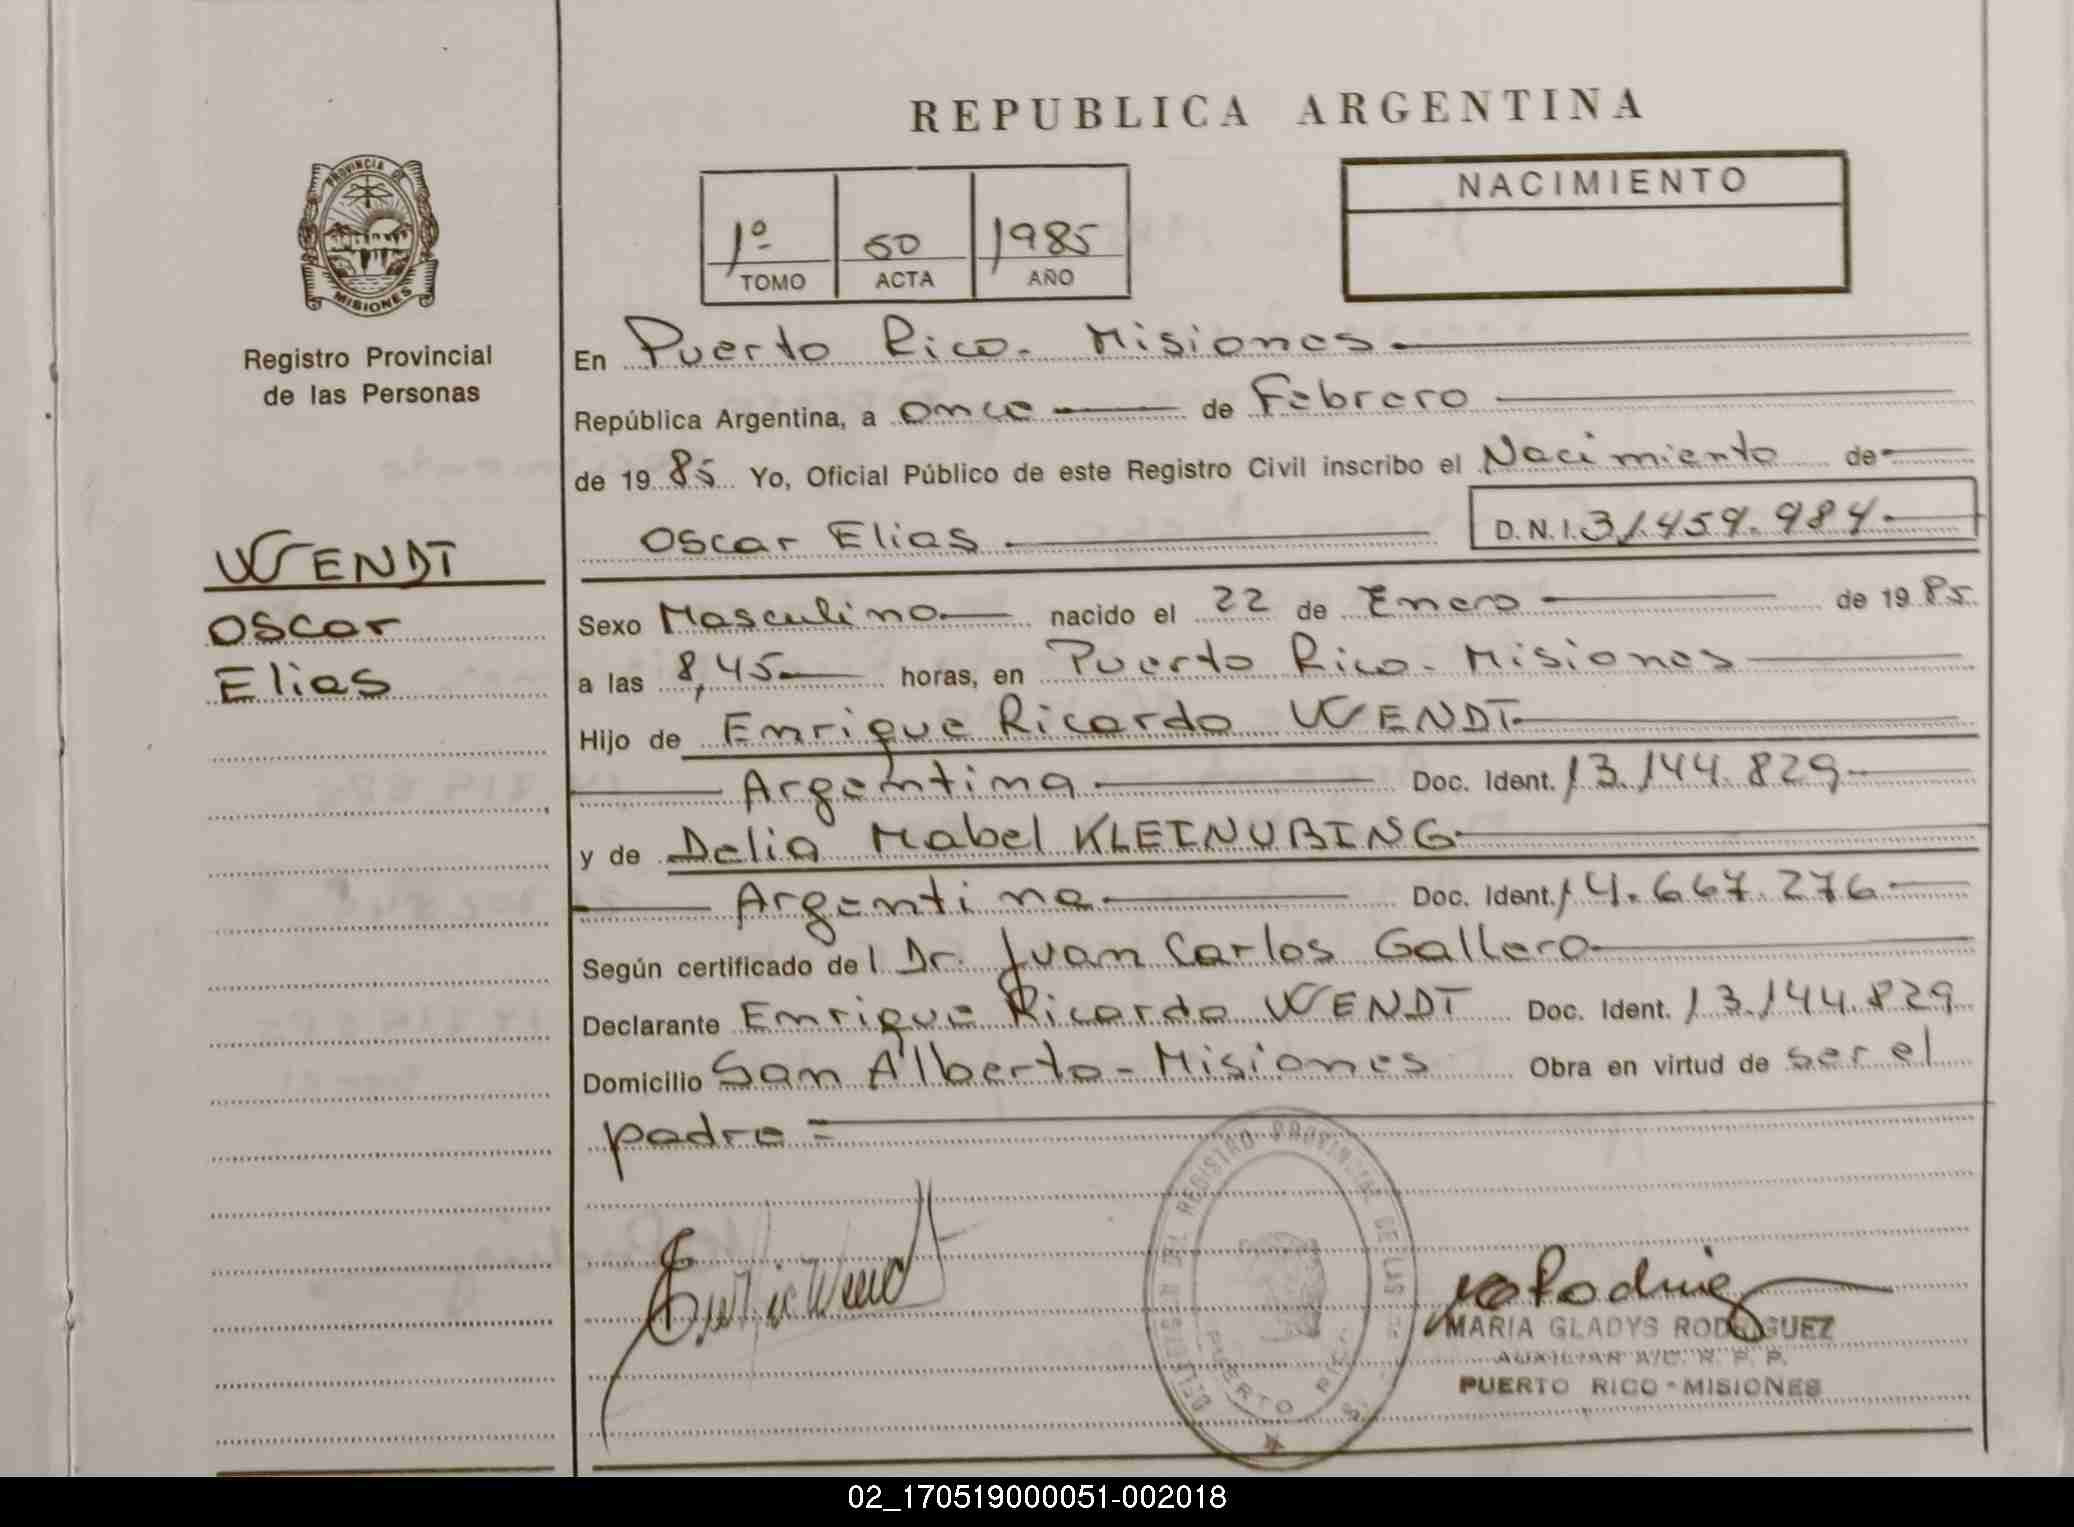 REPUBLICA ARGENTINA
PROVINCIA DE
MISIONES
Registro Provincial
de las Personas
1º 50 1985
TOMO ACTA AÑO
NACIMIENTO
En Puerto Rico - Misiones
República Argentina, a once de Febrero
de 19 85 Yo, Oficial Público de este Registro Civil inscribo el Nacimiento de
Oscar Elias D.N.I. 31.459.984
WENDT
Oscar
Elias
Sexo Masculino nacido el 22 de Enero de 19 85
a las 8,45 horas, en Puerto Rico - Misiones
Hijo de Enrique Ricardo WENDT
Argentina Doc. Ident. 13.144.829
y de Delia Mabel KLEINUBING
Argentina Doc. Ident. 14.667.276
Según certificado del Dr. Juan Carlos Gallero
Declarante Enrique Ricardo WENDT Doc. Ident. 13.144.829
Domicilio San Alberto - Misiones Obra en virtud de ser el
padre =
REGISTRO PROVINCIAL DE LAS
PUERTO RICO
MARIA GLADYS RODRIGUEZ
AUXILIAR A/C. R. P. P.
PUERTO RICO - MISIONES
02_170519000051-002018